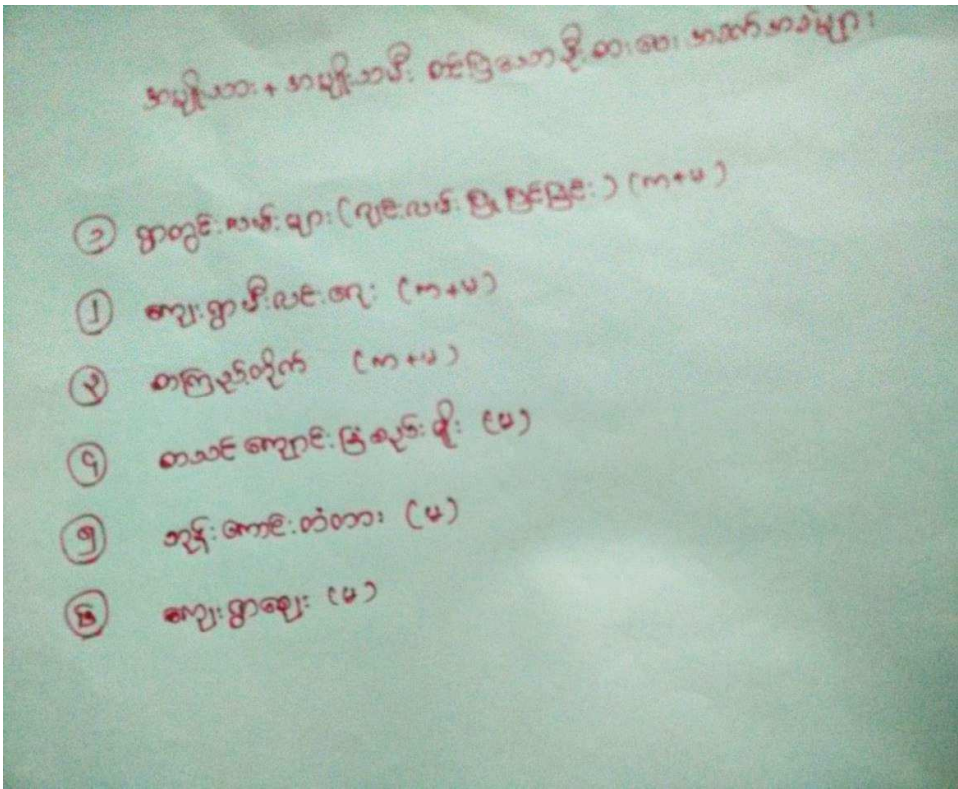 အမျိုးသား + အမျိုးသမီး တင်ပြသောဦးစားပေး အခက်အခဲများ
၁ ရွာတွင်းလမ်းများ (လျင်းလမ်းပြုပြင်ခြင်း) (က+မ)
၂ ကျေးရွာမီးလင်းရေး (က+မ)
၃ စာကြည့်တိုက် (က+မ)
၄ စာသင်ကျောင်းခြံစည်းရိုး (မ)
၅ ဘုန်းကောင်းတံတား (မ)
၆ ကျေးရွာဈေး (မ)